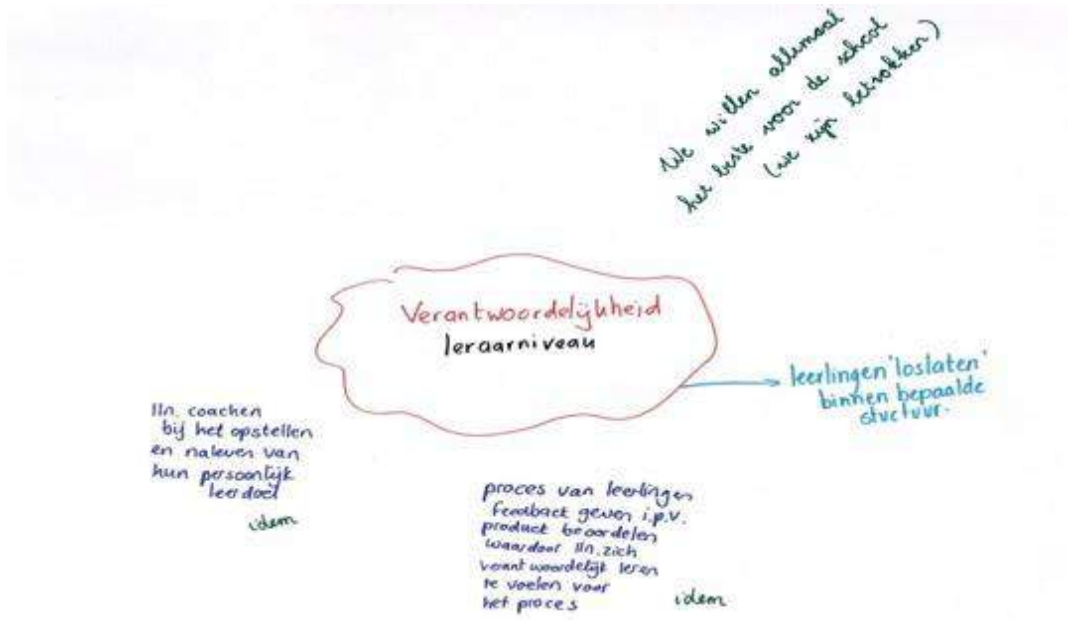 We willen allemaal
het beste voor de school
(we zijn betrokken)
Verantwoordelijkheid
leraarniveau
leerlingen 'loslaten'
binnen bepaalde
structuur.
lln. coachen
bij het opstellen
en naleven van
hun persoonlijk
leerdoel
idem
proces van leerlingen
feedback geven i.p.v.
product beoordelen
waardoor lln. zich
verantwoordelijk leren
te voelen voor
het proces
idem